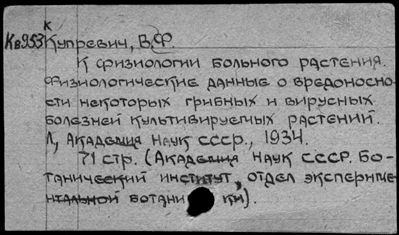 К
Кв953 Купревич, В.Ф.
К физиологии больного растения.
Физиологические данные о вредоносно-
сти некоторых грибных и вирусных
болезней культивируемых растений.
Л, Академия наук СССР., 1934.
71 стр. (Академия наук СССР. Бо-
танический институт, отдел эксперимe-
нтальной ботани ки).